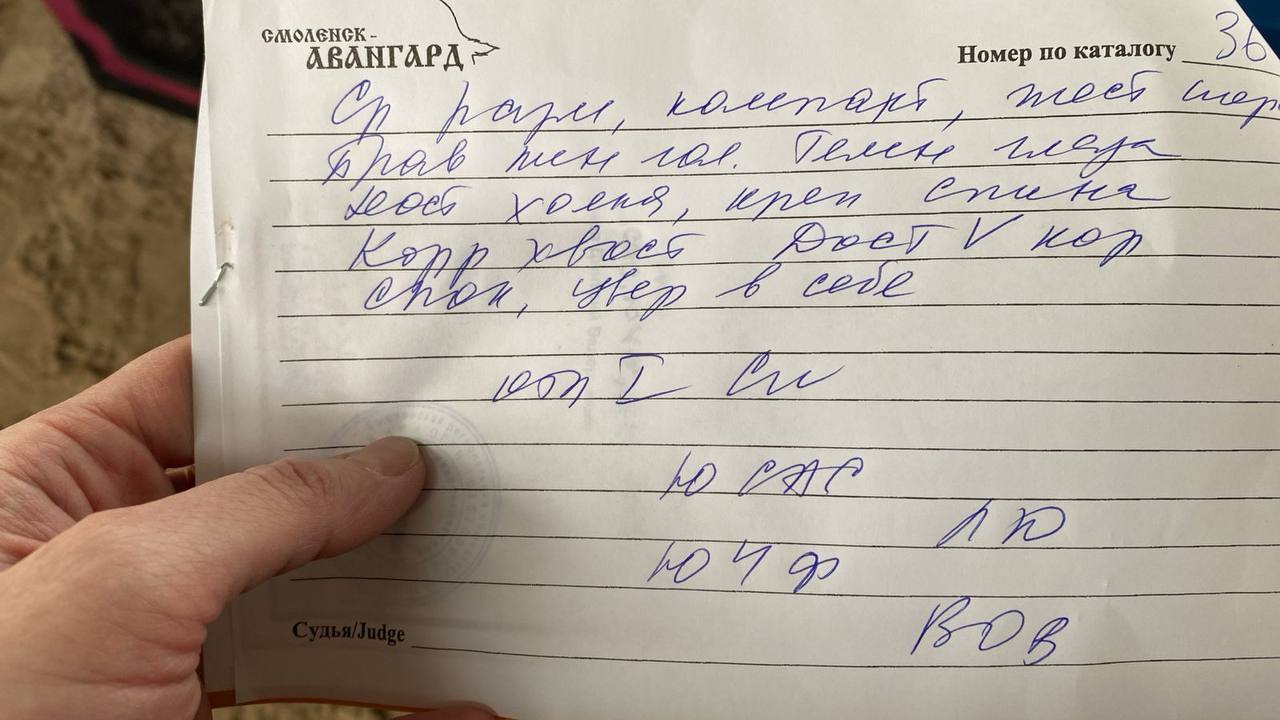 СМОЛЕНСК-
АВАНГАРД
Номер по каталогу 36
Ср разм, компакт, жест шер
Прав жен гол. Темн глаза
Дост холка, креп спина
Корр хвост Дост V кор
Спок, увер в себе
отл I Сw
ЮСАС
ЛЮ
ЮЧФ
ВОв
Судья/Judge